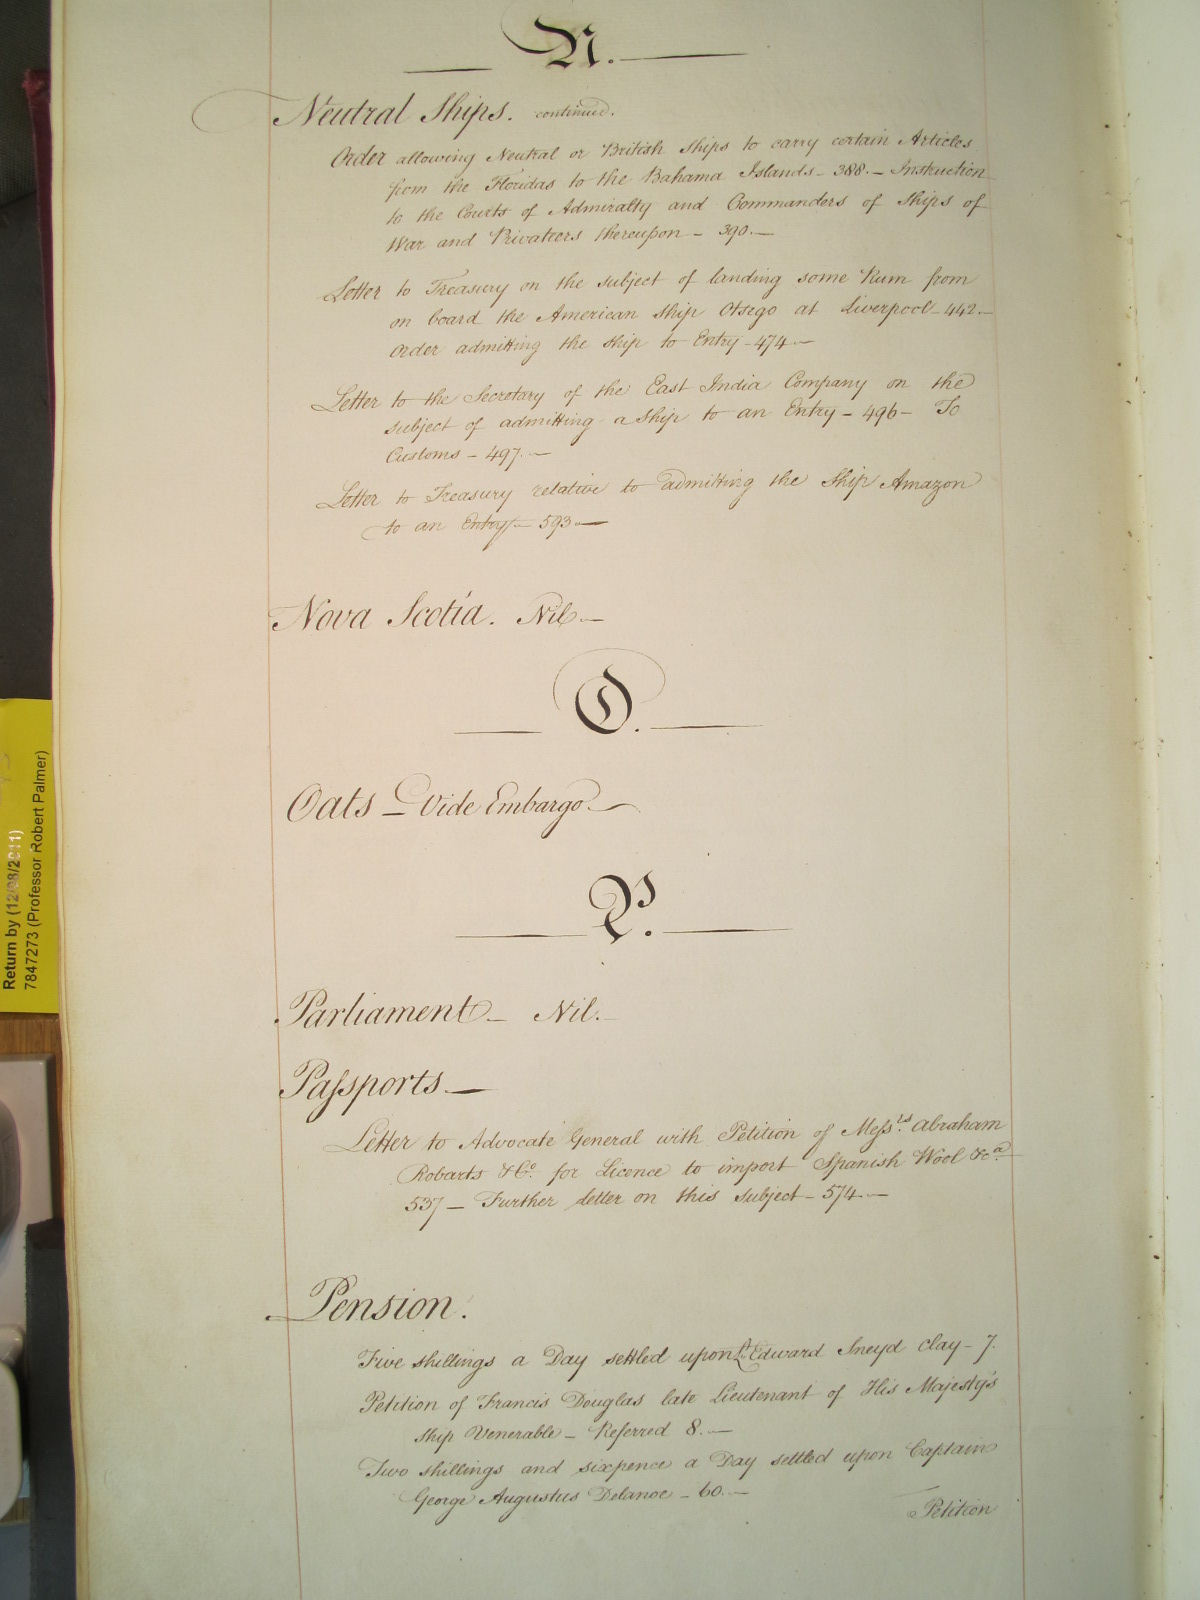 N.
Neutral Ships. continued.
Order allowing Neutral or British Ships to carry certain Articles
from the Floridas to the Bahama Islands - 388. - Instruction
to the Courts of Admiralty and Commanders of Ships of
War and Privateers thereupon - 390. -
Letter to Treasury on the subject of landing some Rum from
on board the American Ship Otsego at Liverpool - 442. -
Order admitting the ship to Entry - 474. -
Letter to the Secretary of the East India Company on the
subject of admitting a Ship to an Entry - 496 - To
Customs - 497. -
Letter to Treasury relative to admitting the Ship Amazon
to an Entry - 593. -
Nova Scotia. Nil. -
O.
Oats - Vide Embargo. -
P.
Parliament - Nil. -
Paſsports -
Letter to Advocate General with Petition of Meſsrs. Abraham
Robarts & Co. for Licence to import Spanish Wool &ca.
537 - Further letter on this subject - 574. -
Pension.
Five shillings a Day settled upon Lt. Edward Sneyd Clay - 7.
Petition of Francis Douglas late Lieutenant of His Majesty's
ship Venerable - Referred 8. -
Two shillings and sixpence a Day settled upon Captain
George Augustus Delanoe - 60. -
Petition
Return by (12/08/2011)
7847273 (Professor Robert Palmer)